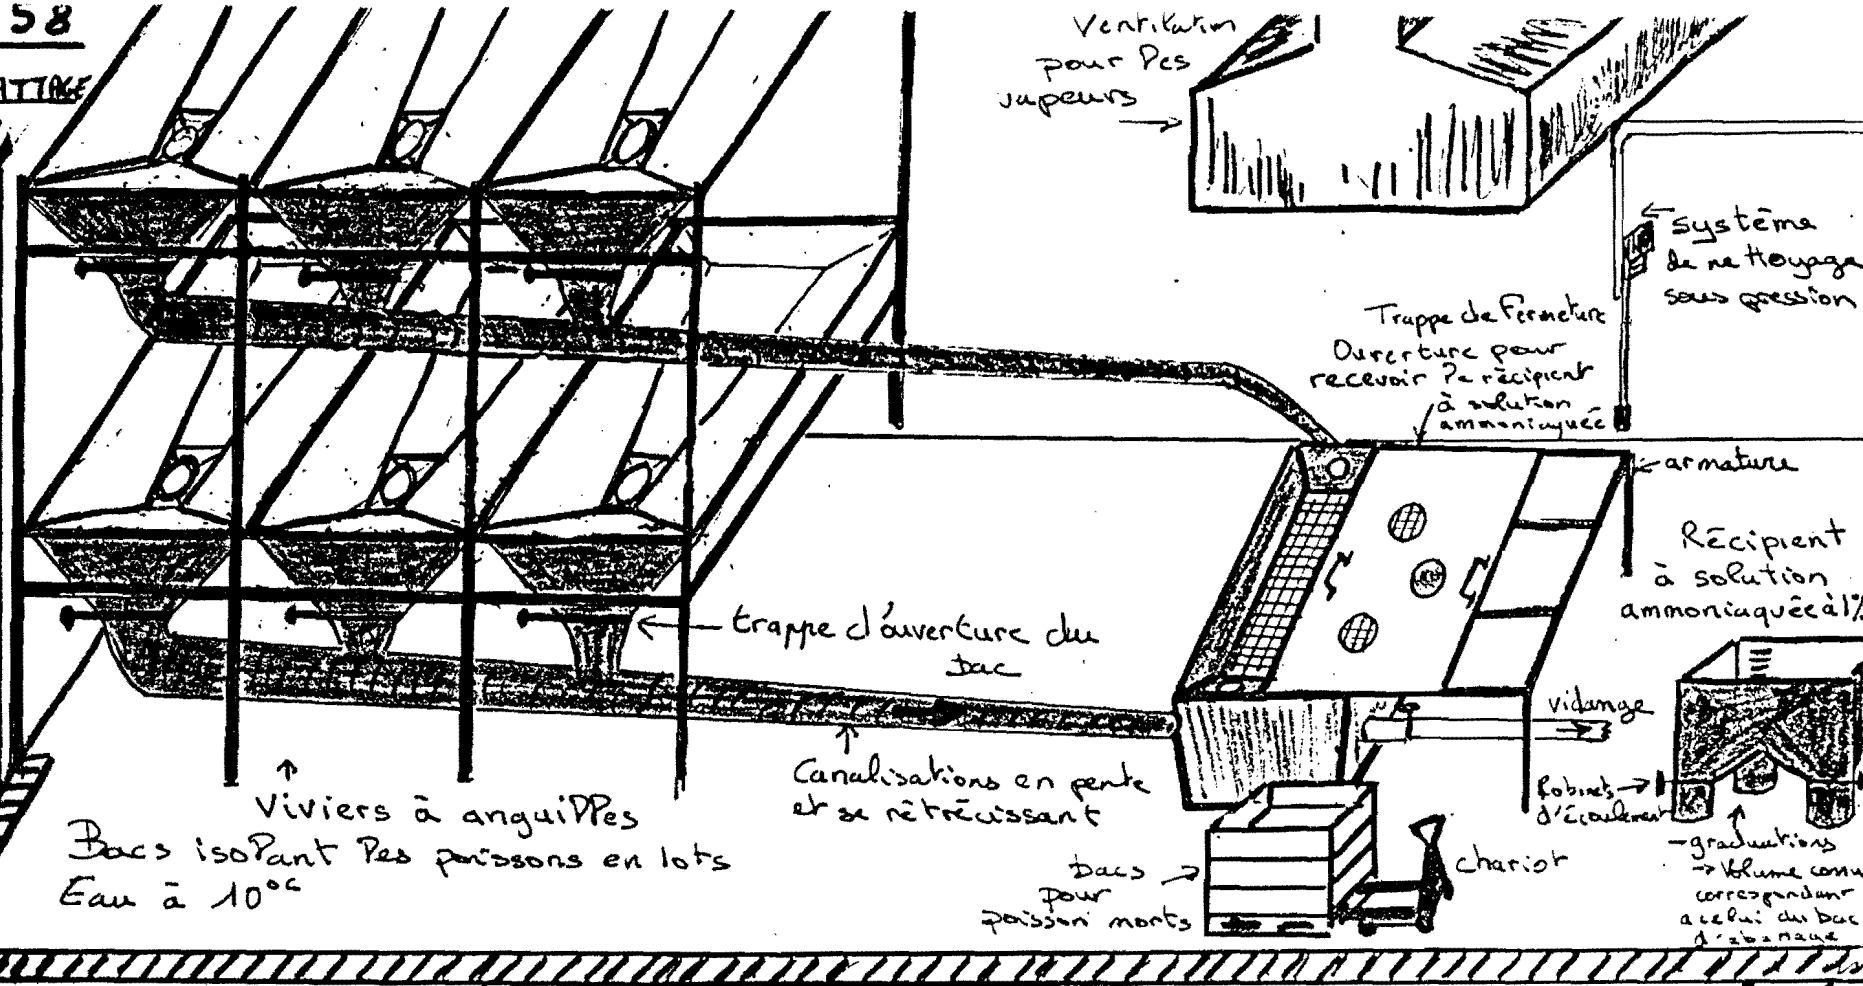 58
ATTAGE
Ventilation
pour les
vapeurs
système
de nettoyage
sous pression
Trappe de Fermeture
Ouverture pour
recevoir le récipient
à solution
ammoniaquée
armature
Récipient
à solution
ammoniaquée à 1%
trappe d'ouverture du
bac
vidange
Canalisations en pente
et se rétrécissant
Robinets
d'écoulement
Viviers à anguilles
Bacs isolant les poissons en lots
Eau à 10°C
bacs
pour
poisson morts
chariot
- graduations
→ Volume connu
correspondant
a celui du bac